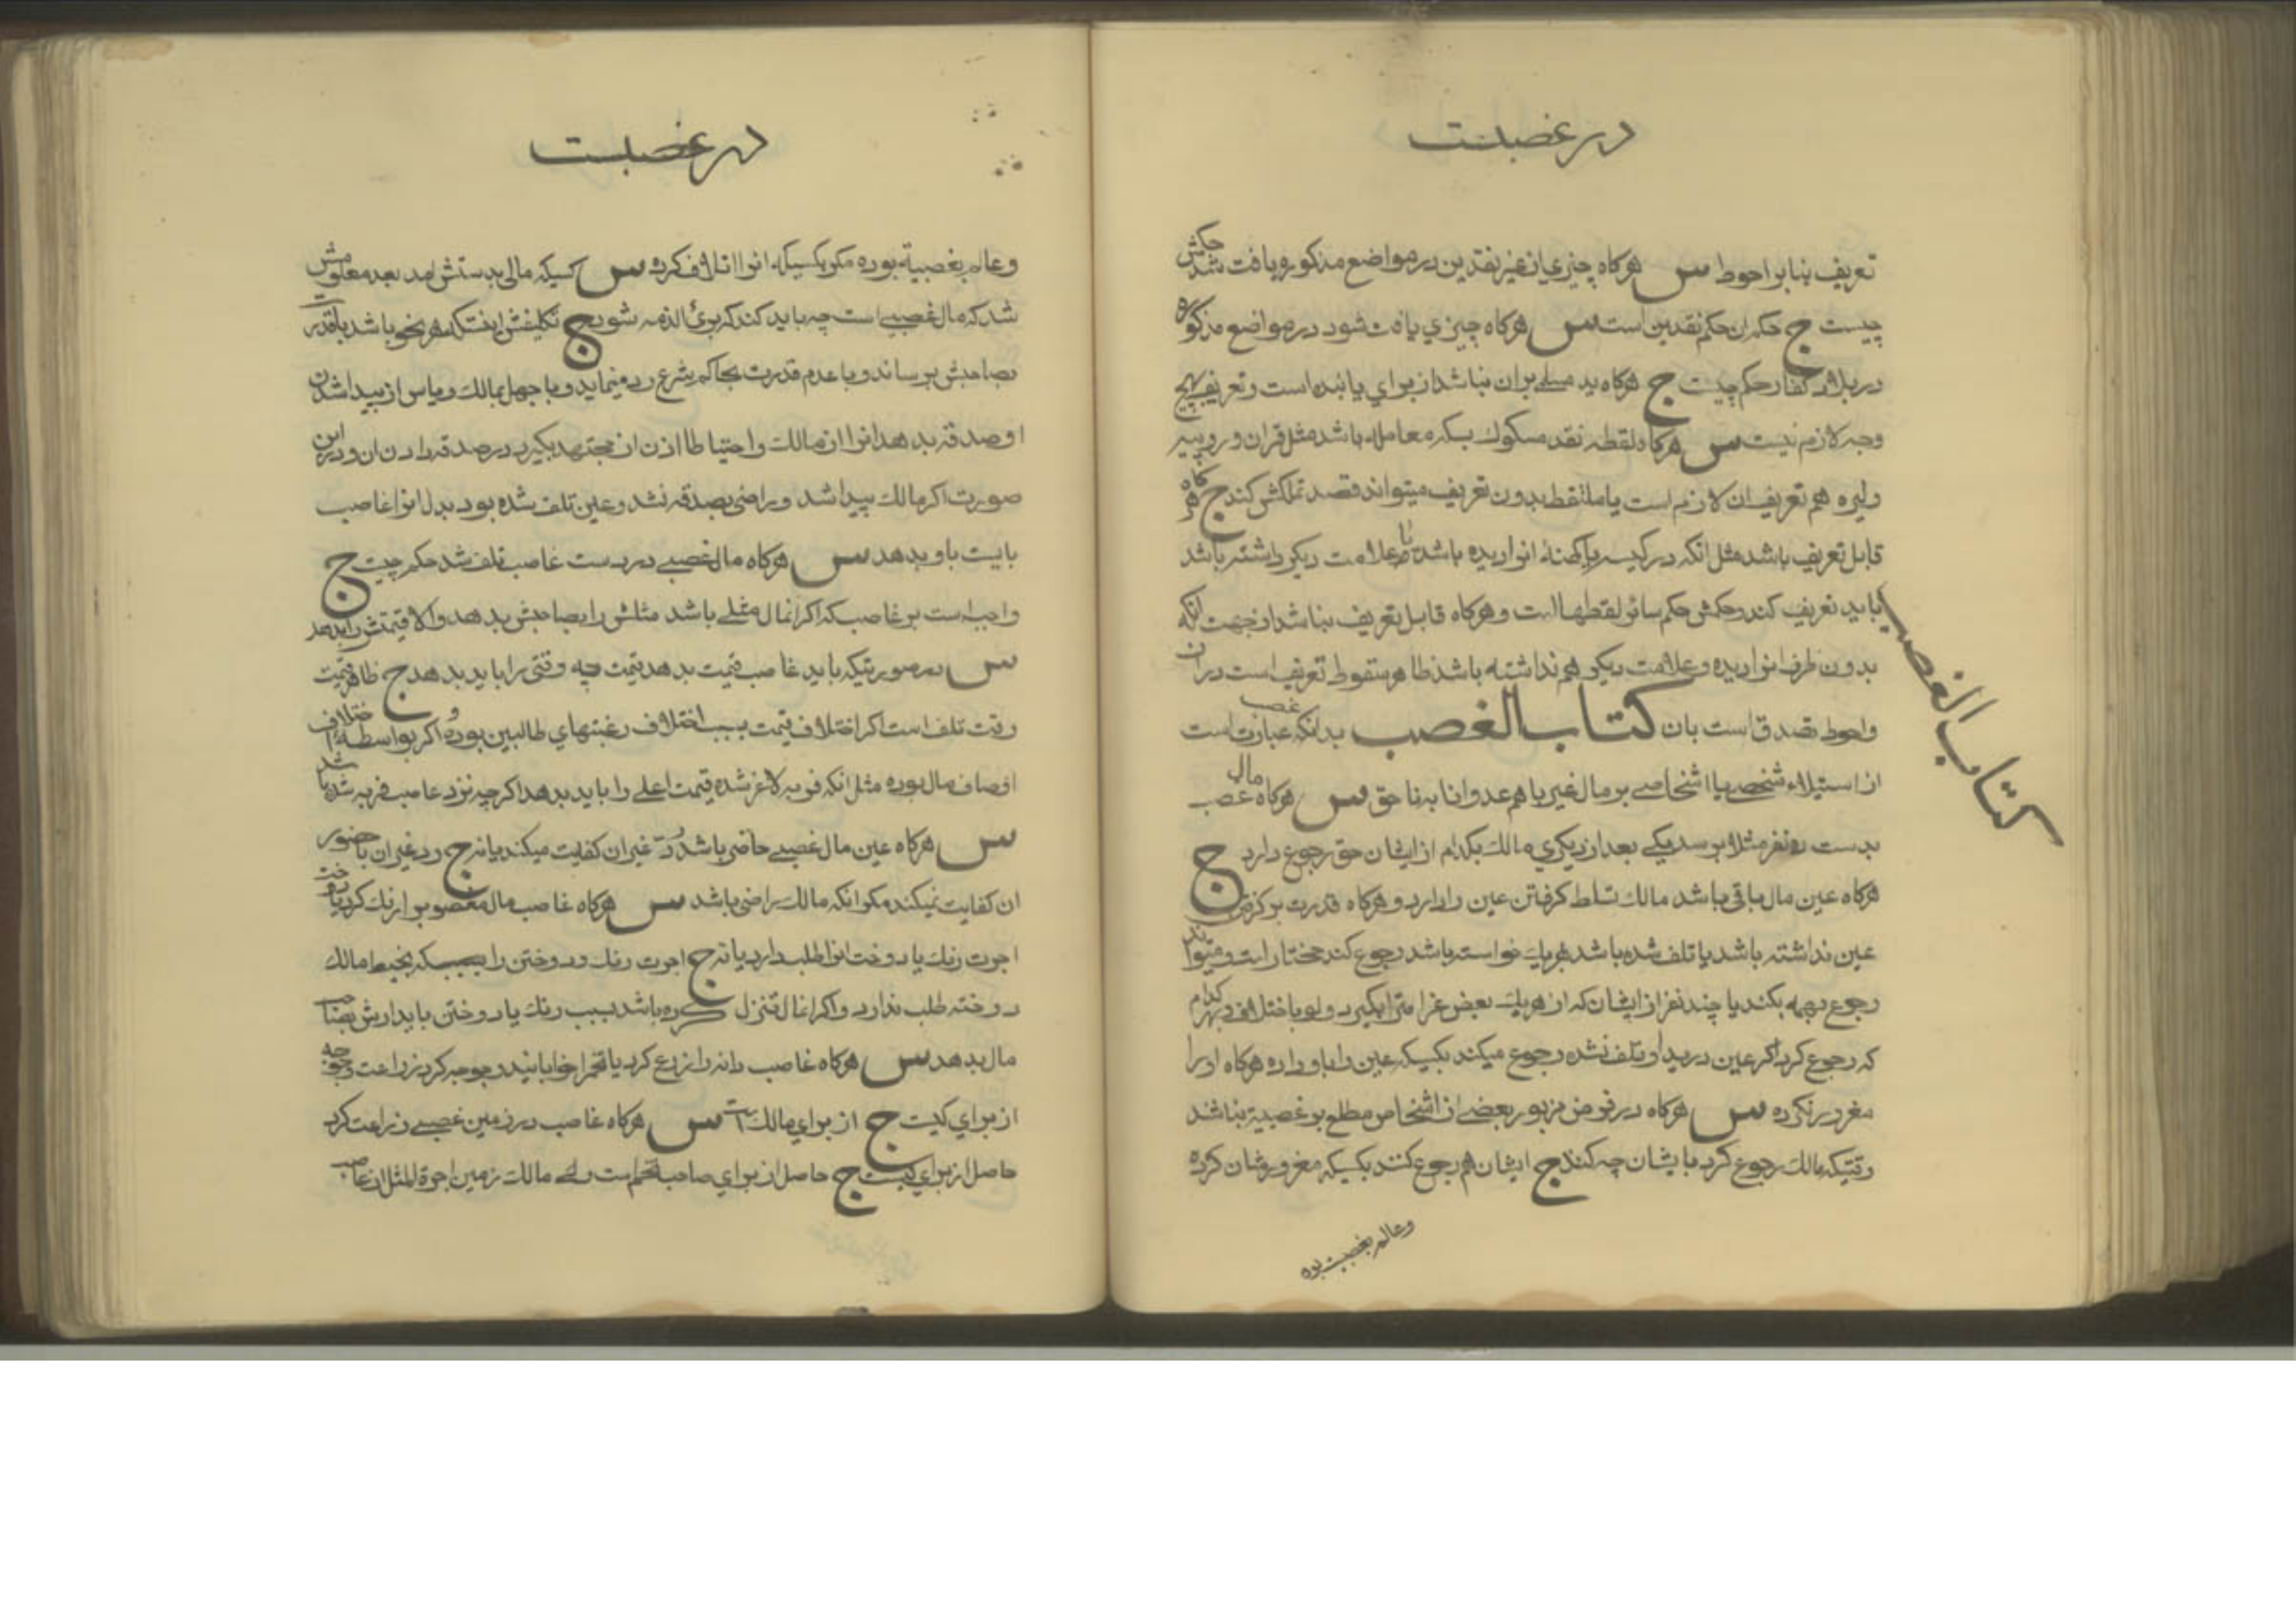 در غصبست
تعریف بنابر احوط س هرکاه چیزي از غیر نقدین در مواضع مذکوره یافت شد حکمش
چیست ج حکم ان حکم نقدین است س هرکاه چیزي یافت شود در مواضع مذکوره
در بلاد کفار حکم چیست ج هرکاه ید مسلم بران نباشد از براي یابنده است و تعریف بهیچ
وجه لازم نیست س هرکاه لقطه نقد مسکوك بسکه معامله باشد مثل قران و روپیه
و لیره هم تعریف ان لازم است یا ملتقط بدون تعریف میتواند قصد تملکش کند ج هرکاه
قابل تعریف باشد مثل انکه در کیسه یا کهنهٔ انوا دیده باشد یا علامت دیکر داشته باشد
باید تعریف کند و حکمش حکم سائر لقطها است و هرکاه قابل تعریف نباشد از جهت انکه
بدون ظرف انوا دیده و علامت دیکر هم نداشته باشد ظاهر سقوط تعریف است در ان
و احوط تصدق است بان کتاب الغصب بدانکه غصب عبارت است
از استیلاء شخصی یا اشخاصی بر مال غیر با هم عدوانا به نا حق س هرکاه مال غصب
بدست دو نفر مثلا برسد یکی بعد از دیکري مالك بکدام از ایشان حق رجوع دارد ج
هرکاه عین مال باقی باشد مالك تسلط کرفتن عین را دارد و هرکاه قدرت بر کرفتن
عین نداشته باشد یا تلف شده باشد بهر یك خواسته باشد رجوع کند مختار است و میتواند
رجوع بهمه بکند یا چند نفر از ایشان که از هر یك بعض غرامتی بکیرد ولو با ختلاف و بهر کدام
که رجوع کرد اکر عین در ید او تلف نشده رجوع میکند بکسیکه عین را باو داده هرکاه او را
مغرور نکرده س هرکاه در فرض مزبور بعضی از اشخاص مطلع بر غصبیة نباشد
وقتیکه مالك رجوع کرد بایشان چه کند ج ایشان هم رجوع کنند بکسیکه مغرورشان کرده
وعالم بغصبیت بوده
کتاب الغصب
در غصبست
وعالم بغصبیة بوده مکر بکسیکه انوا اتلاف کرده س کسیکه مالی بدستش امد بعد معلومش
شد که مال غصبی است چه باید کند که برئ الذمه شود ج تکلیفش اینست که بهر نحو باشد با قدرت
بصاحبش برساند و با عدم قدرت بحاکم شرع رد مینماید و با جهل بمالك و یاس از پیدا شدن
او صدقه بدهد انوا از مالك و احتیاطا اذن از مجتهد بکیرد در صدقه دادن ان و در این
صورت اکر مالك پیدا شد و راضی بصدقه نشد و عین تلف شده بود بدل انوا غاصب
بایست باو بدهد س هرکاه مال غصبی در دست غاصب تلف شد حکم چیست ج
واجب است بر غاصب که اکر انمال مثلی باشد مثلش را بصاحبش بدهد و الا قیمتش را بدهد
س در صورتیکه باید غاصب قیمت بدهد قیمت چه وقتی را باید بدهد ج ظاهر قیمت
وقت تلف است اکر اختلاف قیمت بسبب اختلاف رغبتهاي طالبین بوده و اکر بواسطهٔ اختلاف
اوصاف مال بوده مثل انکه فربه لاغر شده قیمت اعلی را باید بدهد اکر چه نزد غاصب فربه شده باشد
س هرکاه عین مال غصبی حاضر باشد رد غیر ان کفایت میکند یا نه ج رد غیر ان با حضور
ان کفایت نمیکند مکر انکه مالك راضی باشد س هرکاه غاصب مال مغصوب را رنك کرد یا دوخت
اجرت رنك یا دوخت انرا طلب دارد یا نه ج اجرت رنك و دوختن را بکه بخیط مالك
دوخته طلب ندارد و اکر انمال تنزل کرده باشد بسبب رنك یا دوختن باید ارش بصاحب
مال بدهد س هرکاه غاصب دانه را زرع کرد یا تخم را خوابانید و جوجه کرد زراعت و جوجه
از براي کیست ج از براي مالك است س هرکاه غاصب در زمین غصبی زراعت کرد
حاصل از براي کیست ج حاصل از براي صاحب تخم است ولی مالك زمین اجرة المثل از غاصب